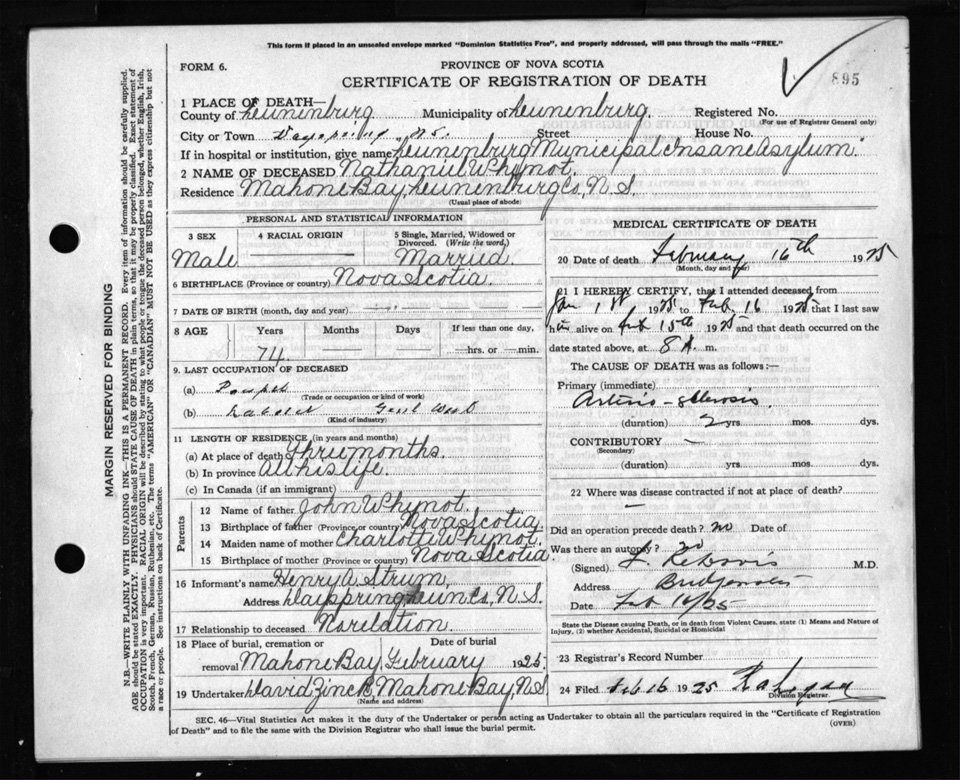 This form if placed in an unsealed envelope marked "Dominion Statistics Free", and properly addressed, will pass through the mails "FREE."
FORM 6.
PROVINCE OF NOVA SCOTIA
CERTIFICATE OF REGISTRATION OF DEATH
895
1 PLACE OF DEATH—
County of Lunenburg Municipality of Lunenburg. Registered No.
(For use of Registrar General only)
City or Town N.S. Street House No.
If in hospital or institution, give name Lunenburg Municipal Insane Asylum.
2 NAME OF DECEASED Nathaniel Whynot.
Residence Mahone Bay, Lunenburg Co, N.S.
(Usual place of abode)
PERSONAL AND STATISTICAL INFORMATION
3 SEX 4 RACIAL ORIGIN 5 Single, Married, Widowed or Divorced. (Write the word,)
Male Married
6 BIRTHPLACE (Province or country) Nova Scotia.
7 DATE OF BIRTH (month, day and year)
8 AGE Years Months Days If less than one day,
74. hrs. or min.
9. LAST OCCUPATION OF DECEASED
(a)
(Trade or occupation or kind of work)
(b)
(Kind of industry)
11 LENGTH OF RESIDENCE (in years and months)
(a) At place of death three months.
(b) In province All his life.
(c) In Canada (if an immigrant)
Parents
12 Name of father John Whynot.
13 Birthplace of father (Province or country) Nova Scotia
14 Maiden name of mother Charlotte Whynot.
15 Birthplace of mother (Province or country) Nova Scotia
16 Informant's name Henry A. Strum,
Address Dayspring Lun Co, N.S.
17 Relationship to deceased No relation.
18 Place of burial, cremation or removal Date of burial
Mahone Bay February 1925.
19 Undertaker David Zinck, Mahone Bay, N.S
(Name and address)
MEDICAL CERTIFICATE OF DEATH
20 Date of death February 16th 1925
(Month, day and year)
21 I HEREBY CERTIFY, that I attended deceased from
Jan 1st 1925 to Feb 16 1925 that I last saw
him alive on Feb 15th 1925 and that death occurred on the
date stated above, at 8 A. m.
The CAUSE OF DEATH was as follows:—
Primary (immediate)
Arterio-sclerosis.
(duration) 2 yrs mos. dys.
CONTRIBUTORY —
(Secondary)
(duration) yrs. mos. dys.
22 Where was disease contracted if not at place of death?
—
Did an operation precede death? no Date of
Was there an autopsy? no
(Signed) M.D.
Address
Date Feb 16/25
State the Disease causing Death, or in death from Violent Causes, state (1) Means and Nature of Injury, (2) whether Accidental, Suicidal or Homicidal
23 Registrar's Record Number
24 Filed Feb 16 1925
Division Registrar.
SEC. 46—Vital Statistics Act makes it the duty of the Undertaker or person acting as Undertaker to obtain all the particulars required in the "Certificate of Registration
of Death" and to file the same with the Division Registrar who shall issue the burial permit.
(OVER)
MARGIN RESERVED FOR BINDING
N.B.—WRITE PLAINLY WITH UNFADING INK—THIS IS A PERMANENT RECORD. Every item of information should be carefully supplied.
AGE should be stated EXACTLY. PHYSICIANS should STATE CAUSE OF DEATH in plain terms, so that it may be properly classified. Exact statement of
OCCUPATION is very important. RACIAL ORIGIN will be described by stating to what people or tongue the deceased person belonged, whether English, Irish,
Scotch, French, German, Russian, Ruthenian, etc. The terms "AMERICAN" OR "CANADIAN" MUST NOT BE USED as they express citizenship but not
a race or people. See instructions on back of Certificate.